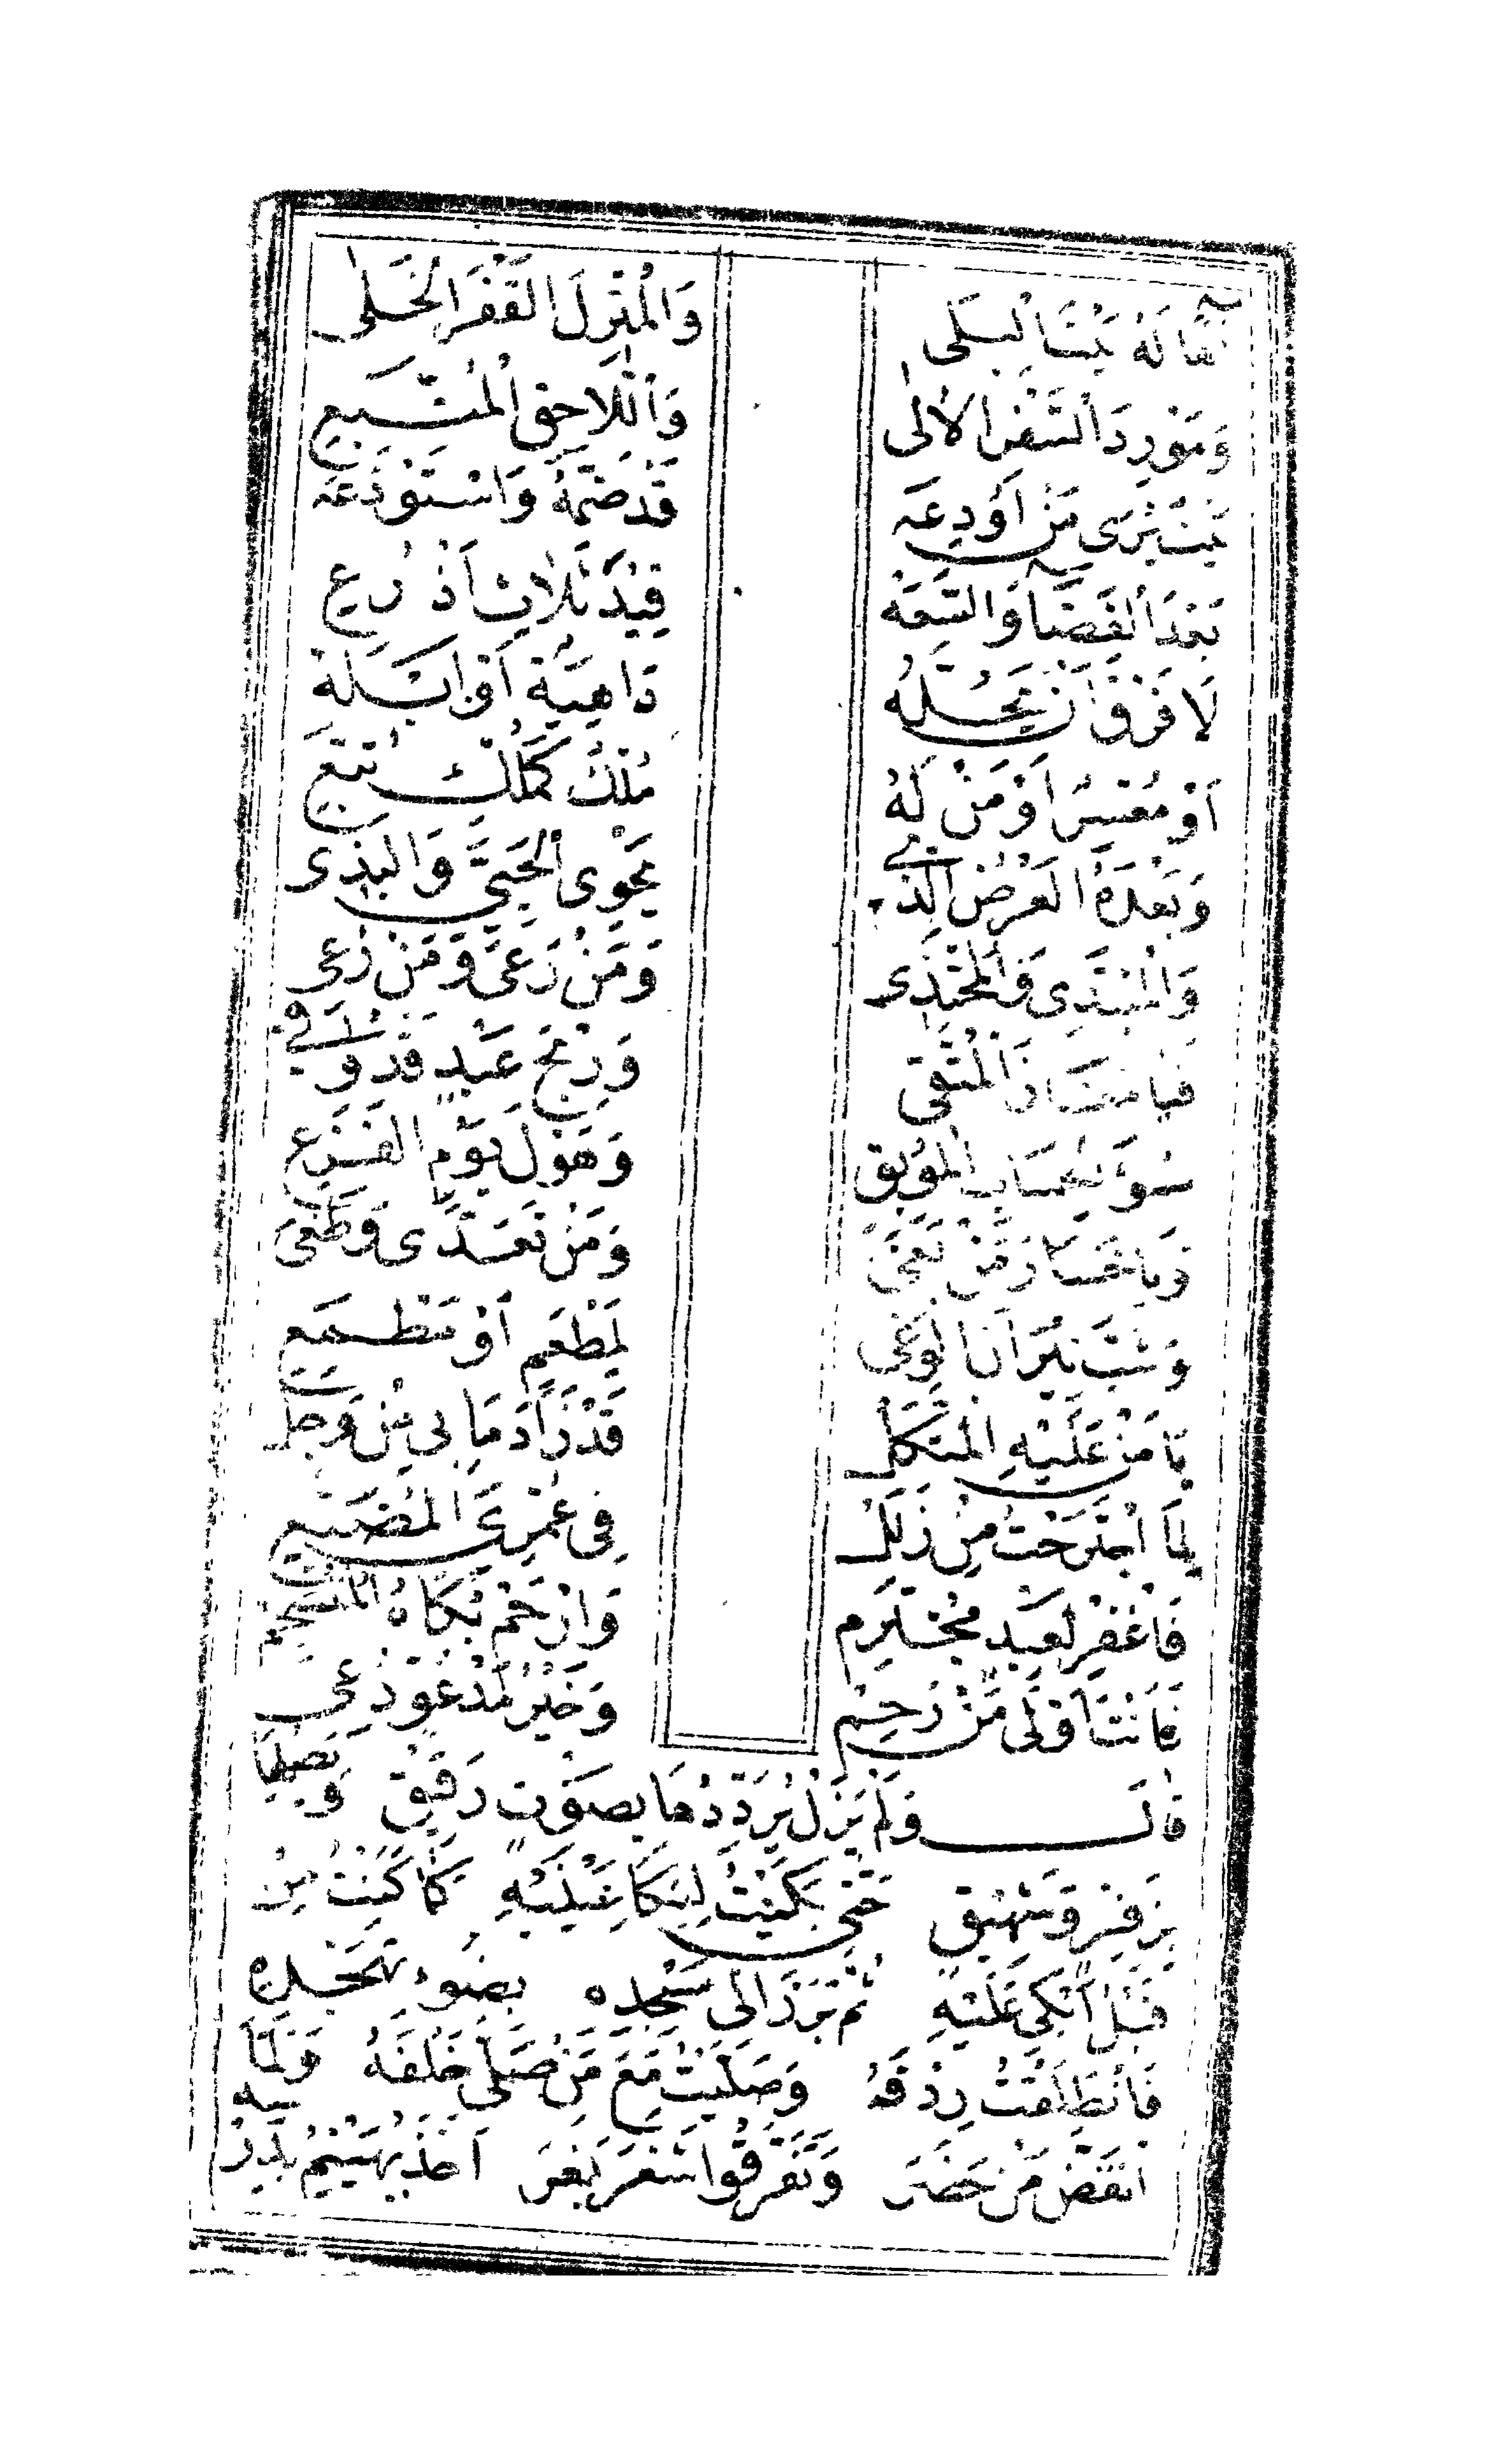 فَهَا لَهُ بَيْتَ الْبِلَى وَالْمَنْزِلَ الْقَفْرَ الْخَلَى
وَمَوْرِدَ السَّفْرِ الْأُلَى وَاللَّاحِقِ الْمُتَّبِعِ
بَيْتٌ يُرَى مَنْ أُودِعَهْ قَدْ ضَمَّهُ وَاسْتُوْدِعَهْ
بَعْدَ الْفَضَآءِ وَالسَّعَهْ قِيْدَ ثَلَاثِ أَذْرُعِ
لَا فَرْقَ أَنْ يَحُلَّهُ دَاهِيَةٌ أَوْ أَبْلَهُ
أَوْ مُعْسِرٌ أَوْ مَنْ لَهُ مُلْكٌ كَمُلْكِ تُبَّعِ
وَبَعْدَهُ الْعَرْضُ الَّذِي يَحْوِى الْحَيِيَّ وَالْبَذِى
وَالْمُبْتَدِى وَالْمُحْتَذِى وَمَنْ رَعَى وَمَنْ رُعِى
فَيَا مَفَازَ الْمُتَّقِى وَرِبْحَ عَبْدٍ قَدْ وُقِي
سُوءَ الْحِسَابِ الْمُوْبِقِ وَهَوْلَ يَوْمِ الْفَزَعِ
وَيَا خَسَارَ مَنْ بَغَى وَمَنْ تَعَدَّى وَطَغَى
وَشَبَّ نِيْرَانَ الْوَغَى لِمَطْعَمٍ أَوْ مَطْمَعِ
يَا مَنْ عَلَيْهِ الْمُتَّكَلْ قَدْ زَادَ مَا بِي مِنْ وَجَلْ
لِمَا اجْتَرَحْتُ مِنْ زَلَلْ فِى عُمْرِيَ الْمُضَيَّعِ
فَاغْفِرْ لِعَبْدٍ مُجْتَرِمْ وَارْحَمْ بُكَاهُ الْمُنْسَجِمْ
فَأَنْتَ أَوْلَى مَنْ رَحِمْ وَخَيْرُ مَدْعُوٍّ دُعِى
قَالَ وَلَمْ يَزَلْ يُرَدِّدُهَا بِصَوْتٍ رَقِيْقٍ وَيَصِلُهَا
بِزَفِيْرٍ وَشَهِيْقٍ حَتَّى بَكَيْتُ لِبُكَآءِ عَيْنَيْهِ كَمَا كُنْتُ مِنْ
قَبْلُ أَبْكِى عَلَيْهِ ثُمَّ بَرَزَ إِلَى مَسْجِدِهِ بِوُضُوءِ تَهَجُّدِهِ
فَانْطَلَقْتُ رِدْفَهُ وَصَلَّيْتُ مَعَ مَنْ صَلَّى خَلْفَهُ وَلَمَّا
انْفَضَّ مَنْ حَضَرَ وَتَفَرَّقُوا شَغَرَ بَغَرَ أَخَذَ يُهَيْنِمُ بِدَرْسِهِ